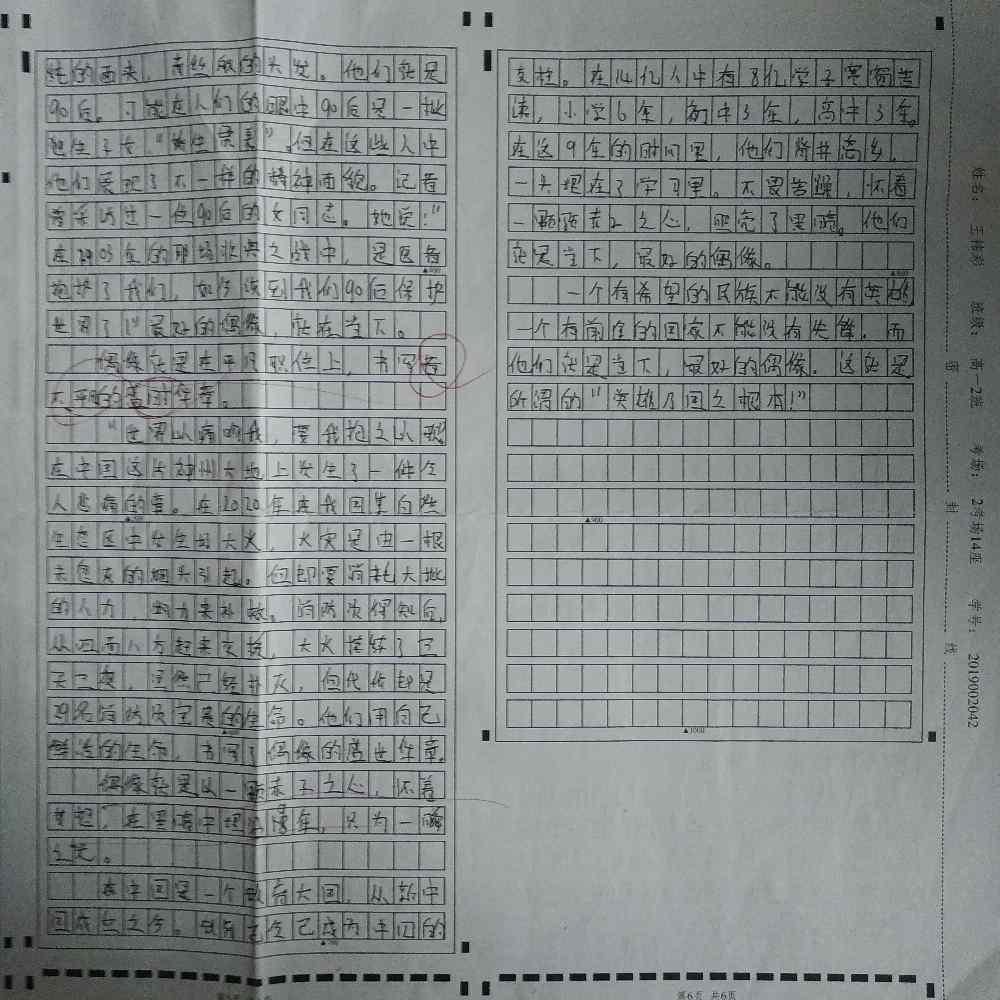 純的西夫，青丝般的头发。他们就是
90后。可能在人们的眼中90后是一批
他们展现了不一样的精神面貌。记者
曾采访过一位90后的女同志。她说："
在2003年的那场非典之战中，是医者
抱护了我们，如今该到我们90后保护
世界了!"最好的偶像，就在当下。
偶像就是在平凡职位上，书写着
不平的盖世华章。
"世界以痛吻我，要我抱之以歌
在中国这片神州大地上发生了一件令
人悲痛的事。在2020年在我国某自然
生态区中发生场大火，火灾是由一根
未熄灭的烟头引起。但却要消耗大批
的人力，物力来补救。消防员得知后，
从四面八方赶来支援，大火持续了三
天三夜，虽然已经扑灭，但代价却是
29名消防员宝贵的生命。他们用自己
鲜活的生命，书写了偶像的盖世华章。
偶像就是以一颗赤子之心，怀着
梦想，在黑暗中埋没多年，只为一瞬
之光。
在中国是一个教育大国，从新中
国成立之今。教育至今已成为中国的
支柱。在14亿人中有8亿学子寒窗苦
读，小学6年，初中3年，高中3年。
在这9年的时间里，他们背井离乡，
一头埋在了学习里。不畏苦燥，怀着
一颗颗赤子之心，照亮了黑暗。他们
就是当下，最好的偶像。
一个有希望的民族不能没有英雄
一个有前途的国家不能没有先锋。而
他们就是当下，最好的偶像。这就是
所谓的"英雄乃国之根本!"
▲900
▲1000
姓名：王格彩 班级：高一2班 考场：2考场14座 学号：2019002042
密 封 线
第6页 共6页